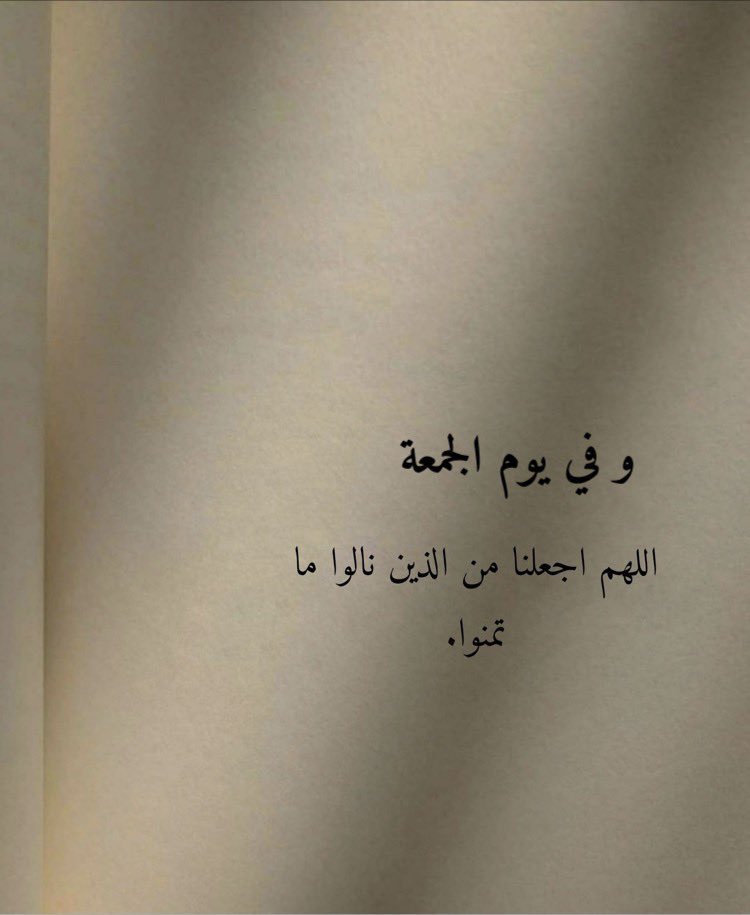 و في يوم الجمعة
اللهم اجعلنا من الذين نالوا ما
تمنوا.